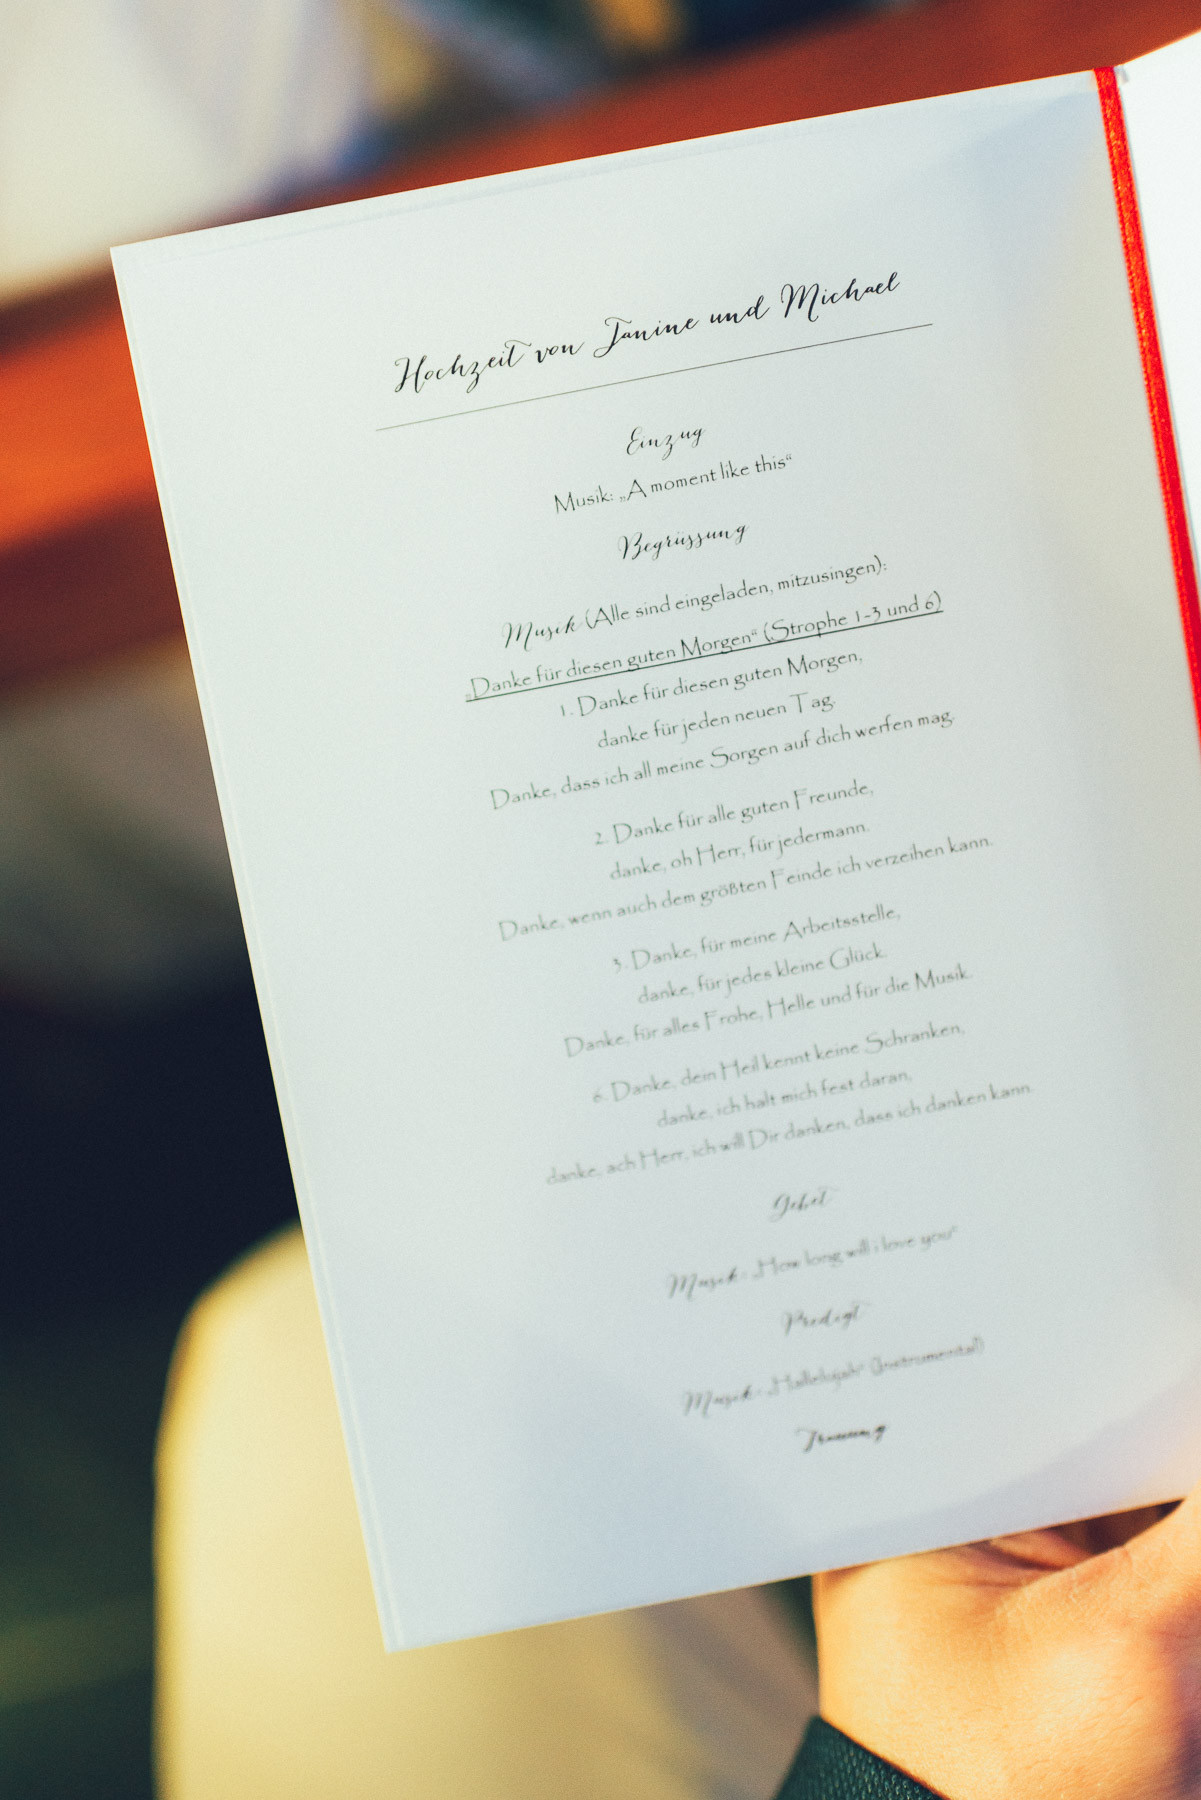 Hochzeit von Janine und Michael
Einzug
Musik: „A moment like this“
Begrüssung
Musik (Alle sind eingeladen, mitzusingen):
„Danke für diesen guten Morgen“ (Strophe 1-3 und 6)
1. Danke für diesen guten Morgen,
danke für jeden neuen Tag.
Danke, dass ich all meine Sorgen auf dich werfen mag.
2. Danke für alle guten Freunde,
danke, oh Herr, für jedermann.
Danke, wenn auch dem größten Feinde ich verzeihen kann.
3. Danke, für meine Arbeitsstelle,
danke, für jedes kleine Glück.
Danke, für alles Frohe, Helle und für die Musik.
6. Danke, dein Heil kennt keine Schranken,
danke, ich halt mich fest daran,
danke, ach Herr, ich will Dir danken, dass ich danken kann.
Gebet
Musik: „How long will i love you“
Predigt
Musik: „Hallelujah“ (Instrumental)
Trauung